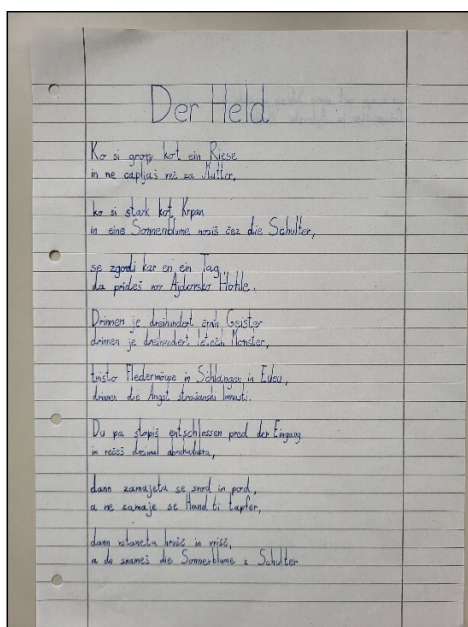 Der Held
Ko si groß kot ein Riese
in ne capljaš več za Mutter,
ko si stark kot Krpan
in eine Sonnenblume nosiš čez die Schulter,
se zgodi kar en ein Tag,
da prideš vor Ajdovsko Höhle.
Drinnen je dreihundert črnih Geister
drinnen je dreihundert letečih Monster,
tristo Fledermäuse in Schlangen in Eulen,
drinnen die Angst strašanski
Du pa stopiš entschlossen pred der Eingang
in rečeš dreimal abrakadabra,
dann zamajeta se svod in pod,
a ne zamaje se Hand ti tapfer,
dann nastaneta hrušč in vrišč,
a du snameš die Sonnenblume z Schulter